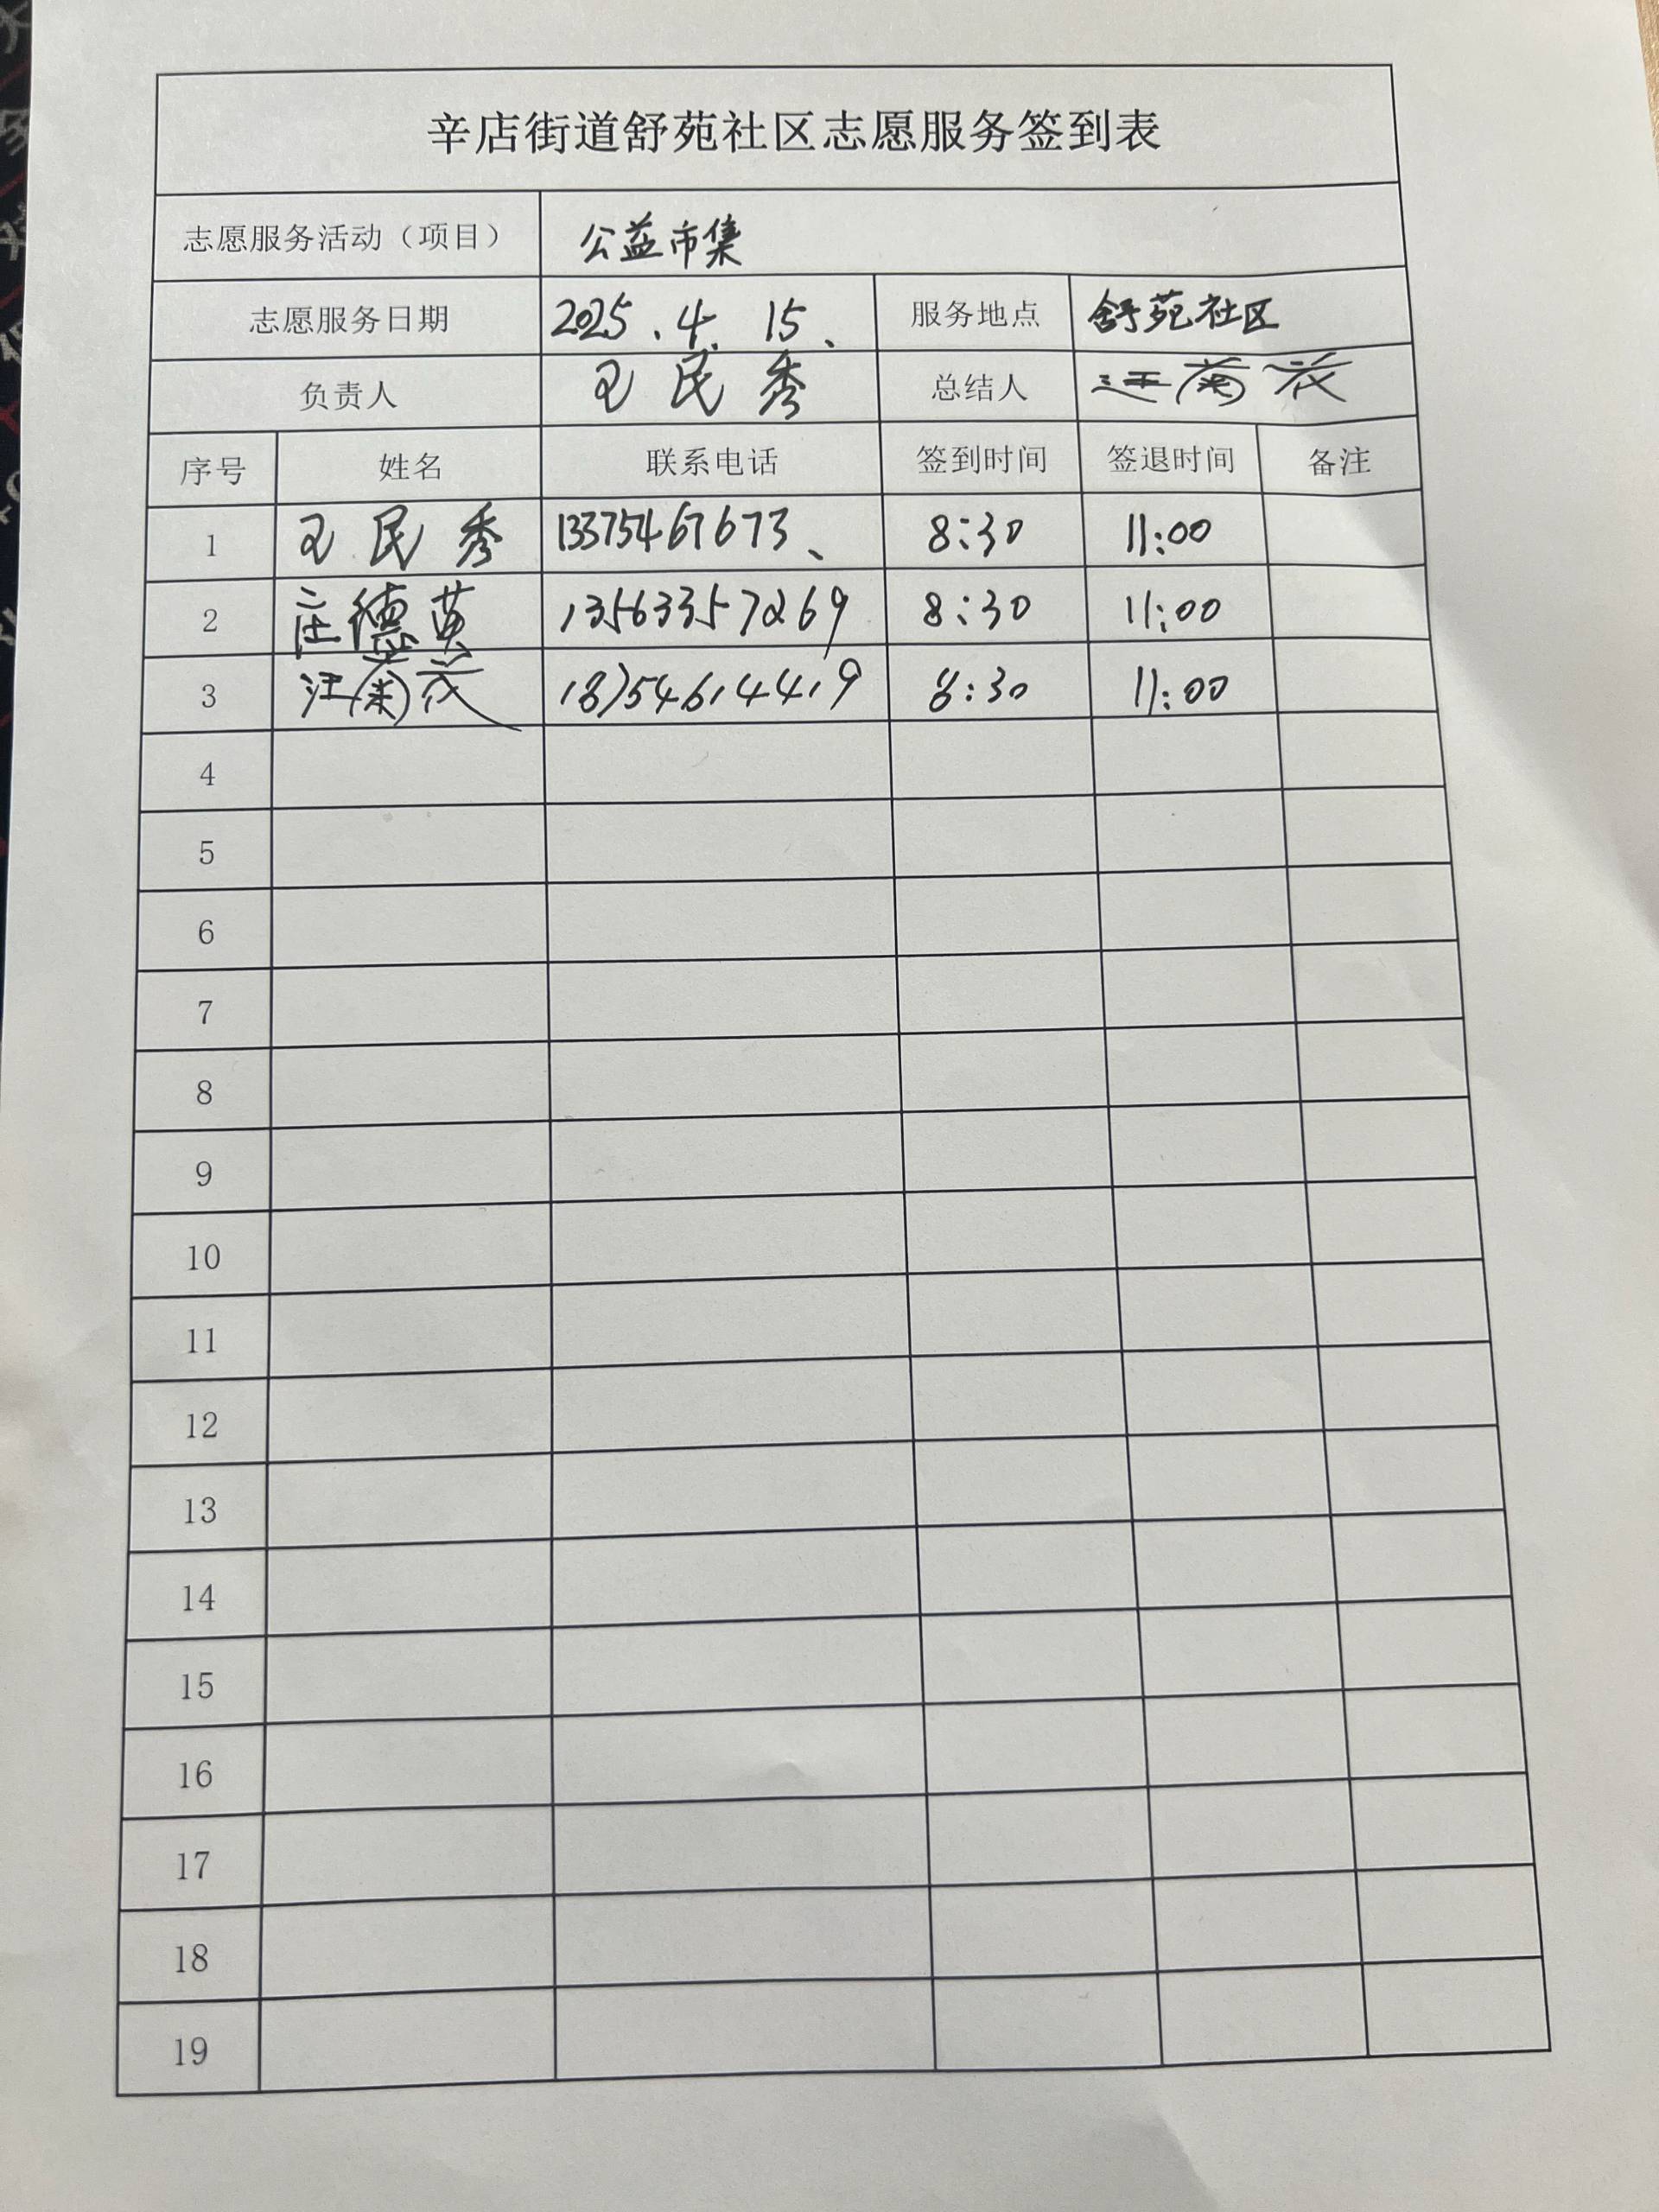 辛店街道舒苑社区志愿服务签到表
志愿服务活动（项目） 公益市集
志愿服务日期 2025.4.15、 服务地点 舒苑社区
负责人 王民秀 总结人 汪菊花
序号 姓名 联系电话 签到时间 签退时间 备注
1 王民秀 13375467673、 8:30 11:00
2 庄德英 13563357269 8:30 11:00
3 汪菊花 18754614419 8:30 11:00
4
5
6
7
8
9
10
11
12
13
14
15
16
17
18
19